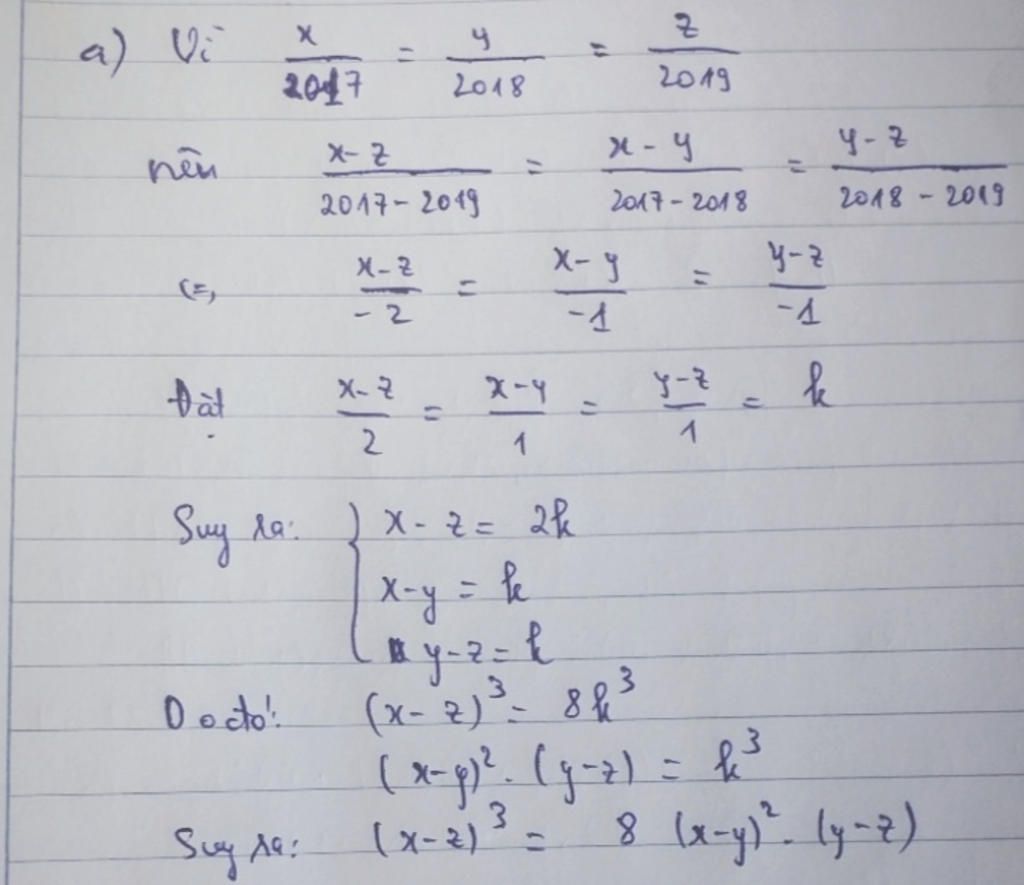 a) Vì x/2017 = y/2018 = z/2019
nên x-z/2017-2019 = x-y/2017-2018 = y-z/2018-2019
<=> x-z/-2 = x-y/-1 = y-z/-1
Đặt x-z/2 = x-y/1 = y-z/1 = k
Suy ra: { x - z = 2k
x-y = k
y-z = k
Do đó: (x-z)³ = 8k³
(x-y)². (y-z) = k³
Suy ra: (x-z)³ = 8 (x-y)². (y-z)